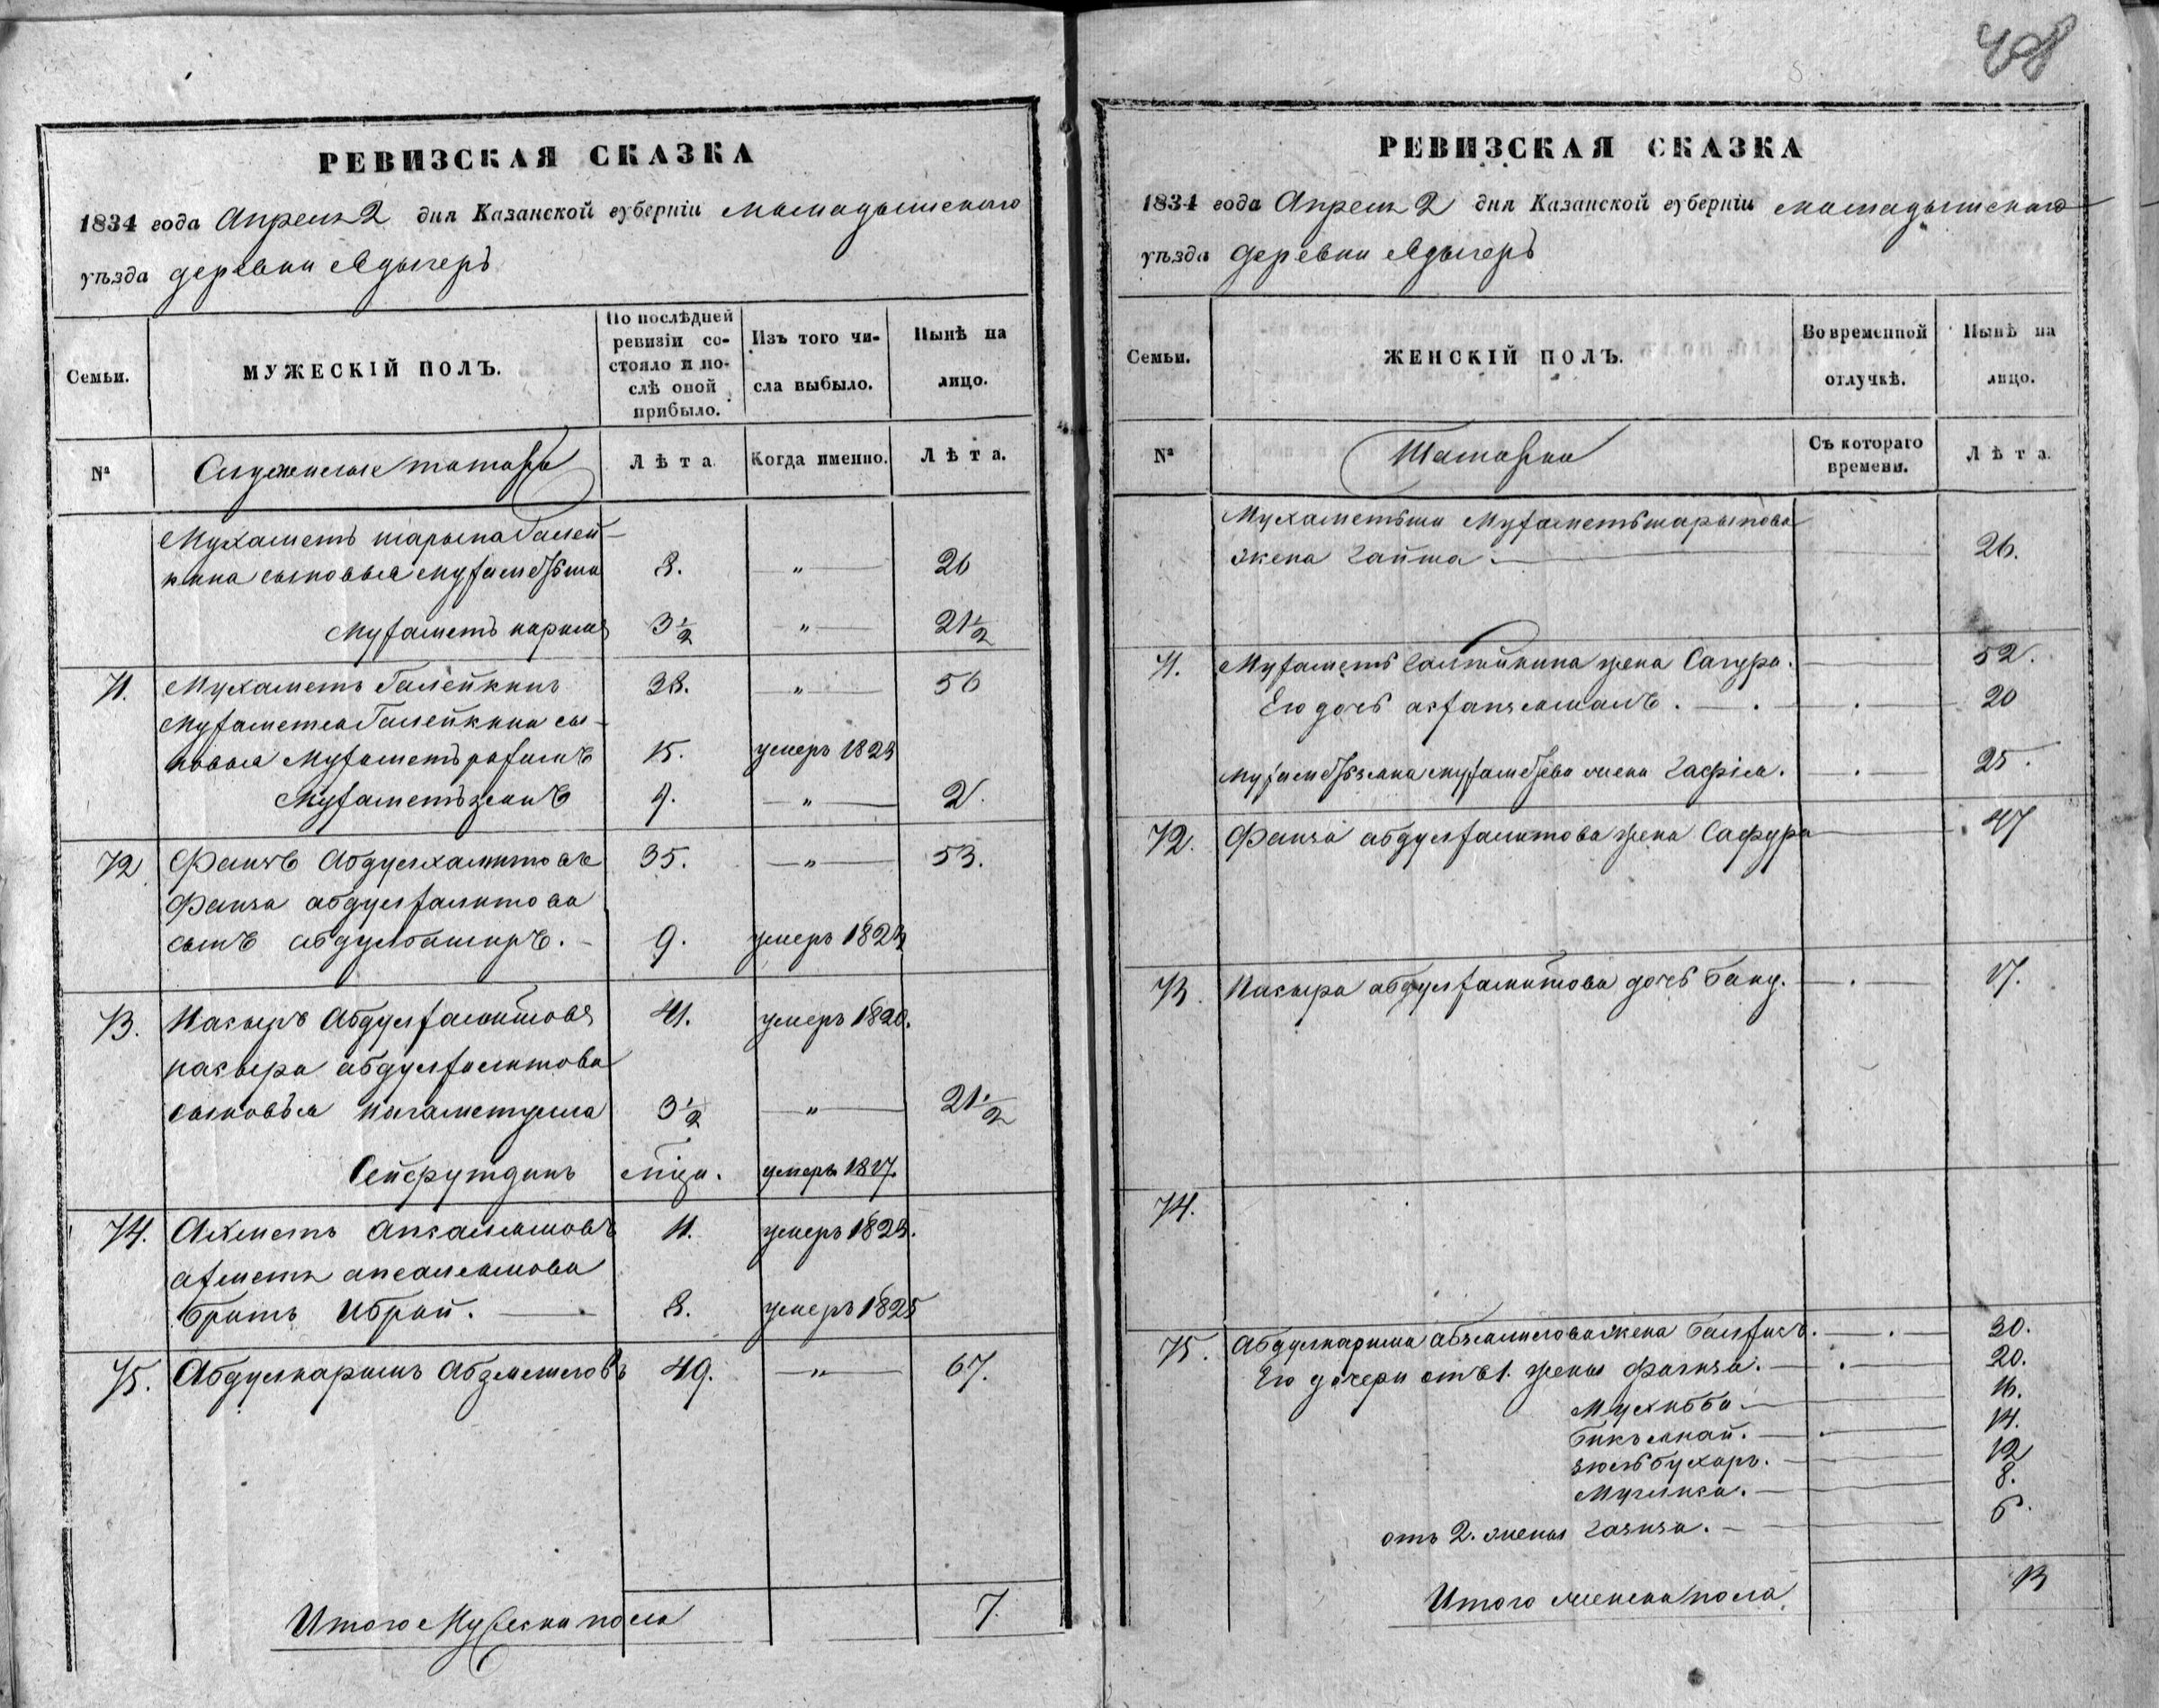 408
РЕВИЗСКАЯ СКАЗКА
1834 года Апреля 2 дня Казанской губерніи мамадышскаго
уѣзда деревни Адыгеръ
Семьи.
МУЖЕСКІЙ ПОЛЪ.
По послѣдней ревизіи состояло и послѣ оной прибыло.
Изъ того числа выбыло.
Нынѣ на лицо.
№
татары
Лѣта
Когда именно.
Лѣта.
Мухаметъ шарыпа Галей-
кина сыновья мухаметьша 8. " 26
Мухаметъ каримъ 3 1/2 " 21 1/2
71. Мухаметъ Галейкинъ 38. " 56
Мухаметя Галейкина сы-
новья Мухаметърахимъ 15. умеръ 1823
Мухаметъзянъ " 2
72 Фаизъ Абдулхалитовъ 35. " 53.
Фаиза абдулхалитова
сынъ абдулбашыръ. 9. умеръ 1824
73. Насыръ Абдулхалитовъ 41. умеръ 1820.
насыра абдулхалитова
сыновья нигаметулла 3 1/2 " 21 1/2
Сейфутдинъ умеръ 1817.
74. Ахметъ Апсалямовъ 11. умеръ 1823.
ахметя апсалямова
братъ Ибрай. 8. умеръ 1825
75. Абдулкаримъ Абзелиловъ 49. " 67.
Итого Мужеска пола 7.
РЕВИЗСКАЯ СКАЗКА
1834 года Апреля 2 дня Казанской губерніи мамадышскаго
уѣзда деревни Адыгеръ
Семьи.
ЖЕНСКІЙ ПОЛЪ.
Во временной отлучкѣ.
Нынѣ на лицо.
№
Татарки
Съ котораго времени.
Лѣта.
Мухаметьши Мухаметьшарыпова
жена Гайша. 26.
71. Мухаметя Галейкина жена Сагура. 52.
Его дочь 20
мухаметьзяна мухаметева жена Гафія. 25.
72. Фаиза абдулхалитова жена Сафура 47
73. Насыра абдулхалитова дочь Бану. 17.
74.
75. Абдулкарима абзялилова жена 30.
Его дочери отъ 1. жены Фагиза. 20.
Мухибба. 16.
Бикъянай. 14.
Зюльбухаръ. 12
Муглиса. 8.
отъ 2. жены Газиза. 6.
Итого женска пола 13